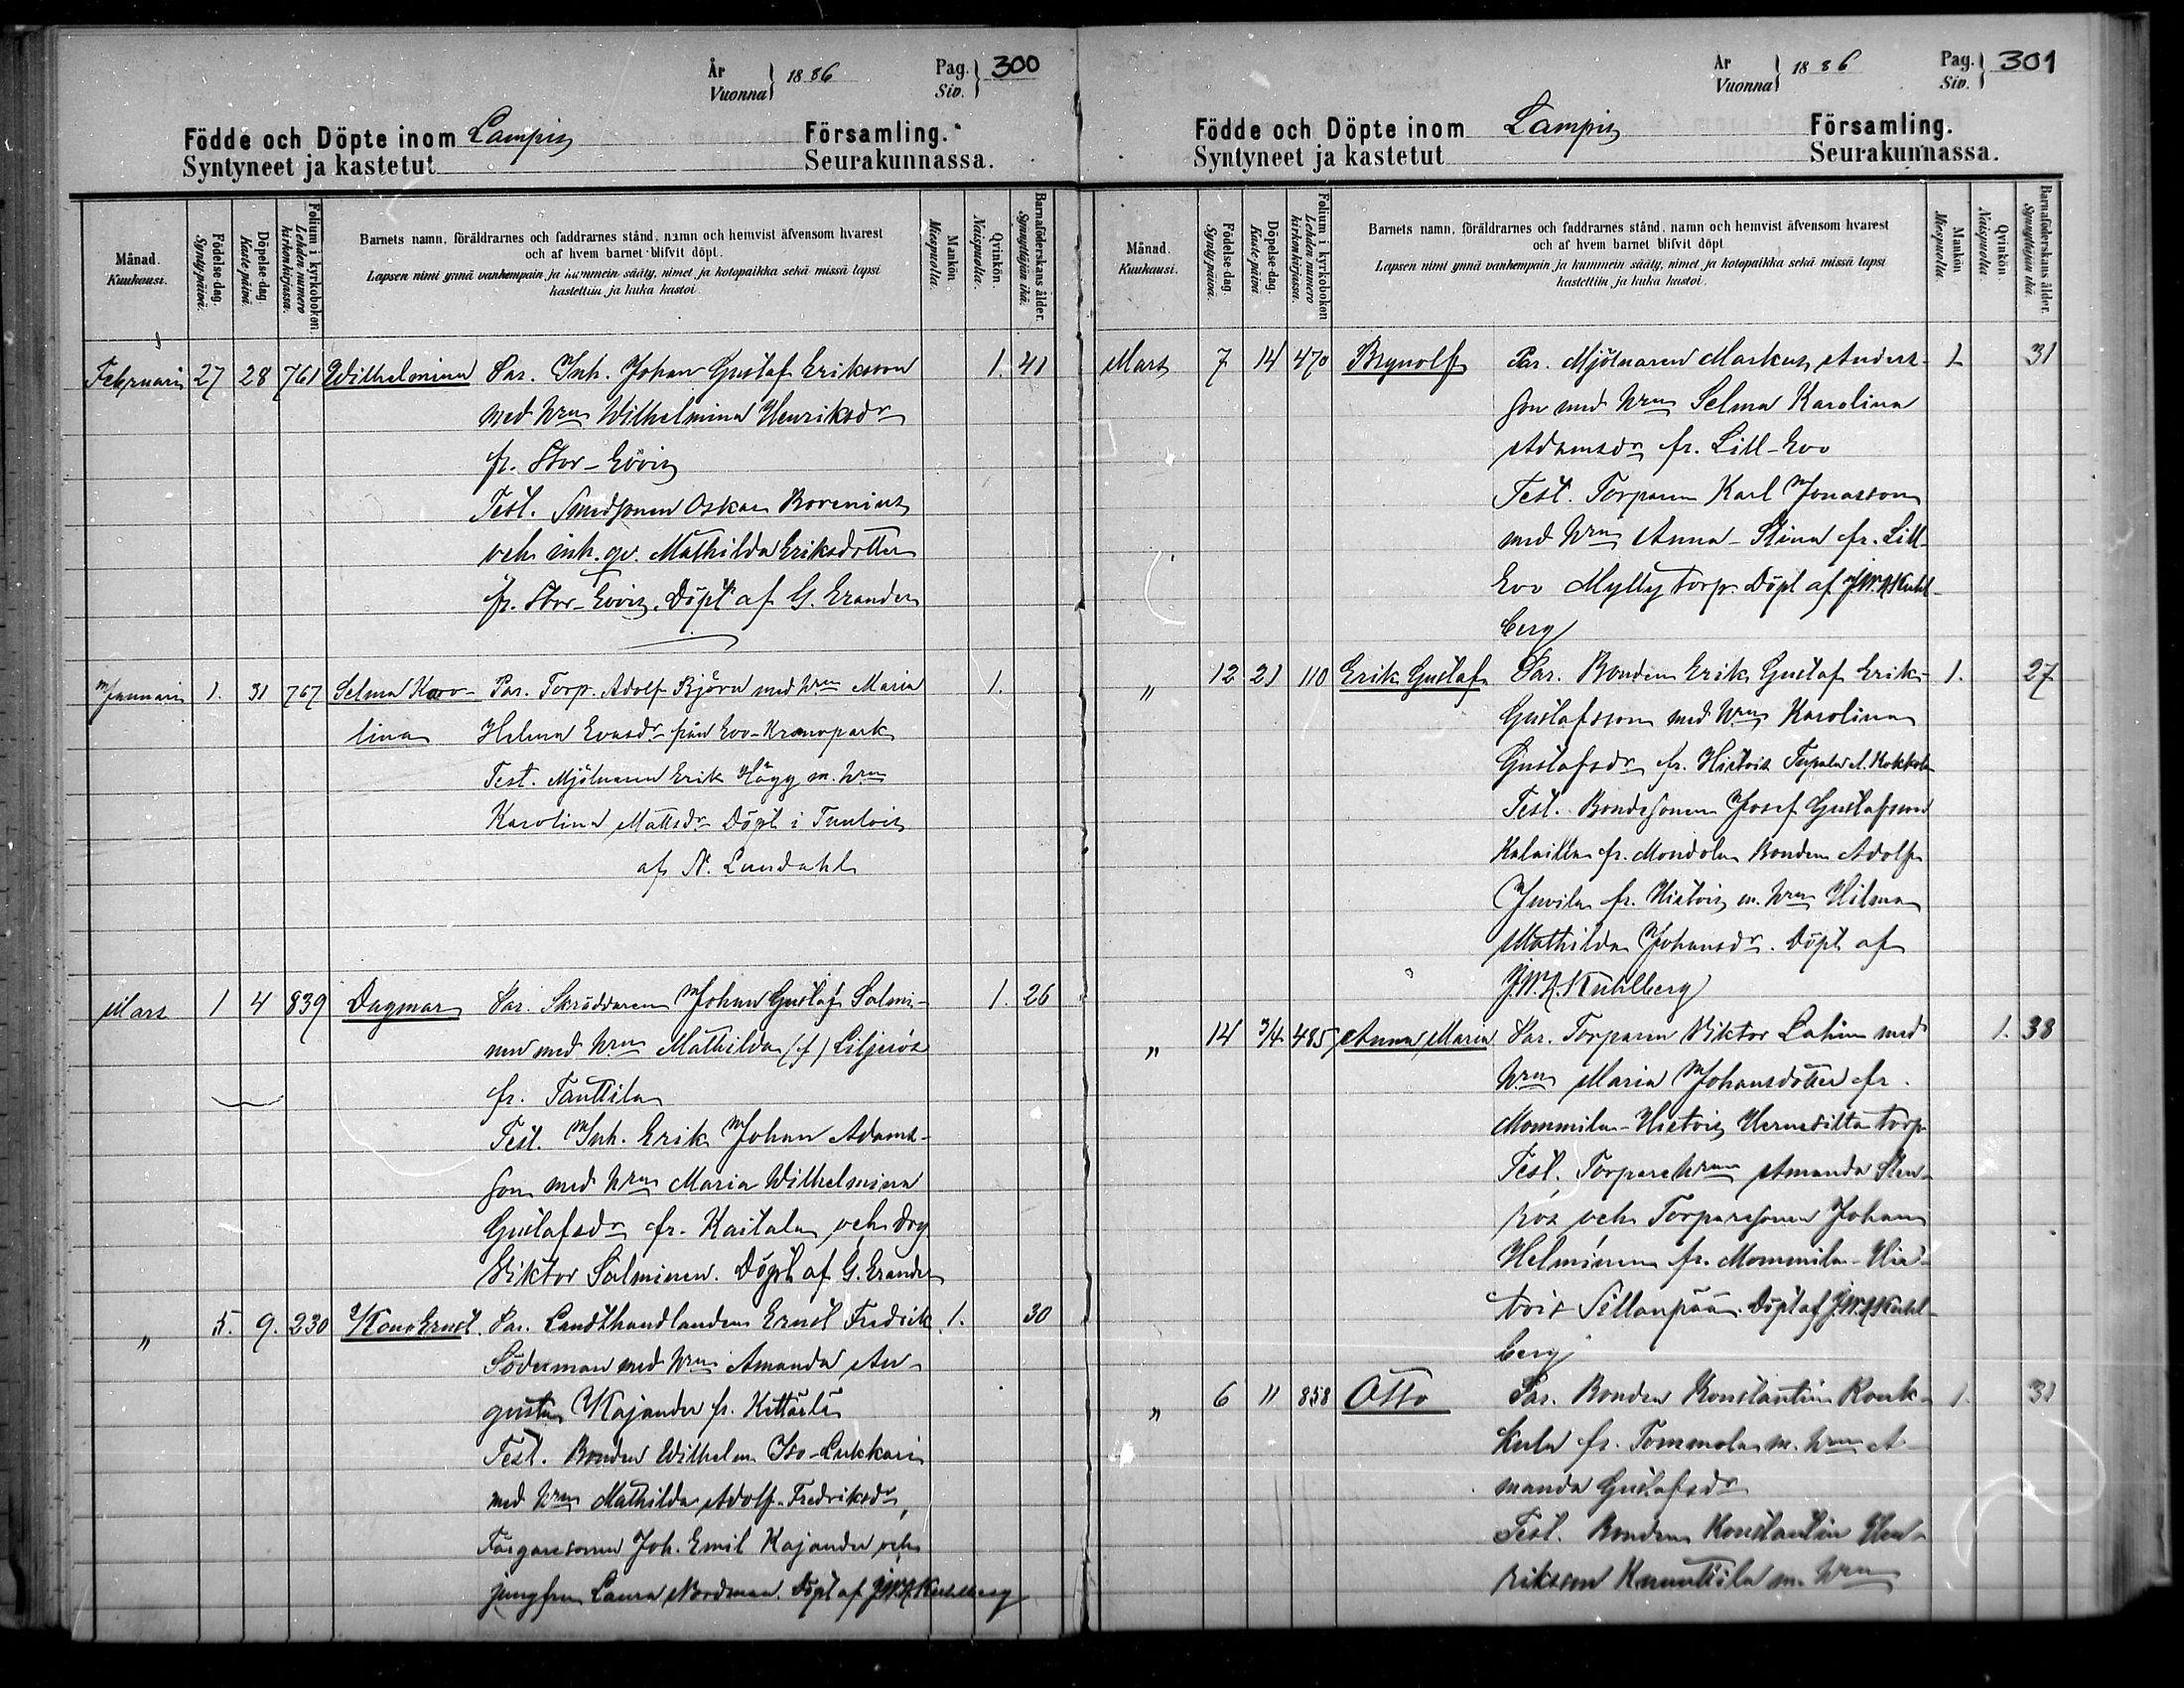 År
Vuonna
1886
Pag.
Siv.
300
Födde och Döpte inom Lampis Församling.
Syntyneet ja kastetut Seurakunnassa.
Månad.
Kuukausi.
Födelse-dag.
Synty-päivä.
Döpelse-dag.
Kaste-päivä.
Folium i kyrkobokon.
Lehden numero kirkonkirjassa.
Barnets namn, föräldrarnes och faddrarnes stånd, namn och hemvist äfvensom hvarest
och af hvem barnet blifvit döpt.
Lapsen nimi ynnä vanhempain ja kummein sääty, nimet ja kotopaikka sekä missä lapsi
kastettiin ja kuka kastoi.
Mankön.
Miespuolia.
Qvinkön.
Naispuolia.
Barnaföderskans ålder.
Synnyttäjän ikä.
Februari 27 28 761 Wilhelmina Par. Inh. Johan Gustaf Eriksson 1. 41
med hru Wilhelmina Henriksdr
fr. Stor-Evois
Test. Smedsonen Oskar Borenius
och inh. qv. Mathilda Eriksdotter
fr. Stor-Evois. Döpt af G. Erander
Januari 1. 31 767 Selma Karo- Par. Torp. Adolf Björn med hru Maria 1.
lina Helena Evasdr från Evo-Kronopark
Test. Mjölnaren Erik Hägg m. hru
Karolina Mattsdr Döpt i Tuulois
af N. Lundahl
Mars 1 4 839 Dagmar Par. Skräddaren Johan Gustaf Salmi- 1. 26
nen med hru Mathilda (f) Liljeroos
fr. Tanttila
Test. Inh. Erik Johan Adams-
son med hru Maria Wilhelmina
Gustafsdr fr. Kaitala och drg
Viktor Salminen. Döpt af G. Erander
" 5. 9. 230 Kono Ernst. Par. Landthandlanden Ernst Fredrik 1. 30
Söderman med hru Amanda Au-
gusta Kajander fr. Kettärlä
Test. Bonden Wilhelm Iso-Lukkari
med hru Mathilda Adolf-Fredriksdr,
Färgaresonen Joh. Emil Kajander och
jungfrun Laura Nordman. Döpt af J.W.A. Kuhlberg
År
Vuonna
1886
Pag.
Siv.
301
Födde och Döpte inom Lampis Församling.
Syntyneet ja kastetut Seurakunnassa.
Månad.
Kuukausi.
Födelse-dag.
Synty-päivä.
Döpelse-dag.
Kaste-päivä.
Folium i kyrkobokon
Lehden numero kirkonkirjassa.
Barnets namn, föräldrarnes och faddrarnes stånd, namn och hemvist äfvensom hvarest
och af hvem barnet blifvit döpt.
Lapsen nimi ynnä vanhempain ja kummein sääty, nimet ja kotopaikka sekä missä lapsi
kastettiin ja kuka kastoi.
Mankön
Miespuolia.
Qvinkön.
Naispuolia
Barnaföderskans ålder.
Synnyttäjän ikä.
Mars 7 14 470 Brynolf Par. Mjölnaren Markus Anders- 1 31
son med hru Selma Karolina
Adamsdr fr. Lill-Evo
Test. Torparen Karl Jonasson
med hru Anna-Stina fr. Lill-
Evo Mylly torp. Döpt af J.W.A. Kuhl-
berg
" 12 21 110 Erik Gustaf Par. Bonden Erik Gustaf Erik- 1. 27
Gustafsson med hru Karolina
Gustafsdr fr. Hietois
Test. Bondesonen Josef Gustafsson
fr. Mondola Bonden Adolf
Juvila fr. Hietois m. hru Hilma
Mathilda Johansdr. Döpt af
J.W.A. Kuhlberg
" 14 3/4 485 Anna Maria Par. Torparen Viktor Latin med 1. 38
hru Maria Johansdotter fr.
Mommila-Hietois torp
Test. Torparehrun Amanda Sten-
roos och Torparesonen Johan
Helminen fr. Mommila-Hie-
tois Sillanpää. Döpt af J.W.A. Kuhl-
berg
" 6 11 858 Otto Par. Bonden Konstantin Rouk- 1. 31
kula fr. Tommola m. hru A-
manda Gustafsdr
Test. Bonden Konstantin Hen-
riksson Knuuttila m. hru